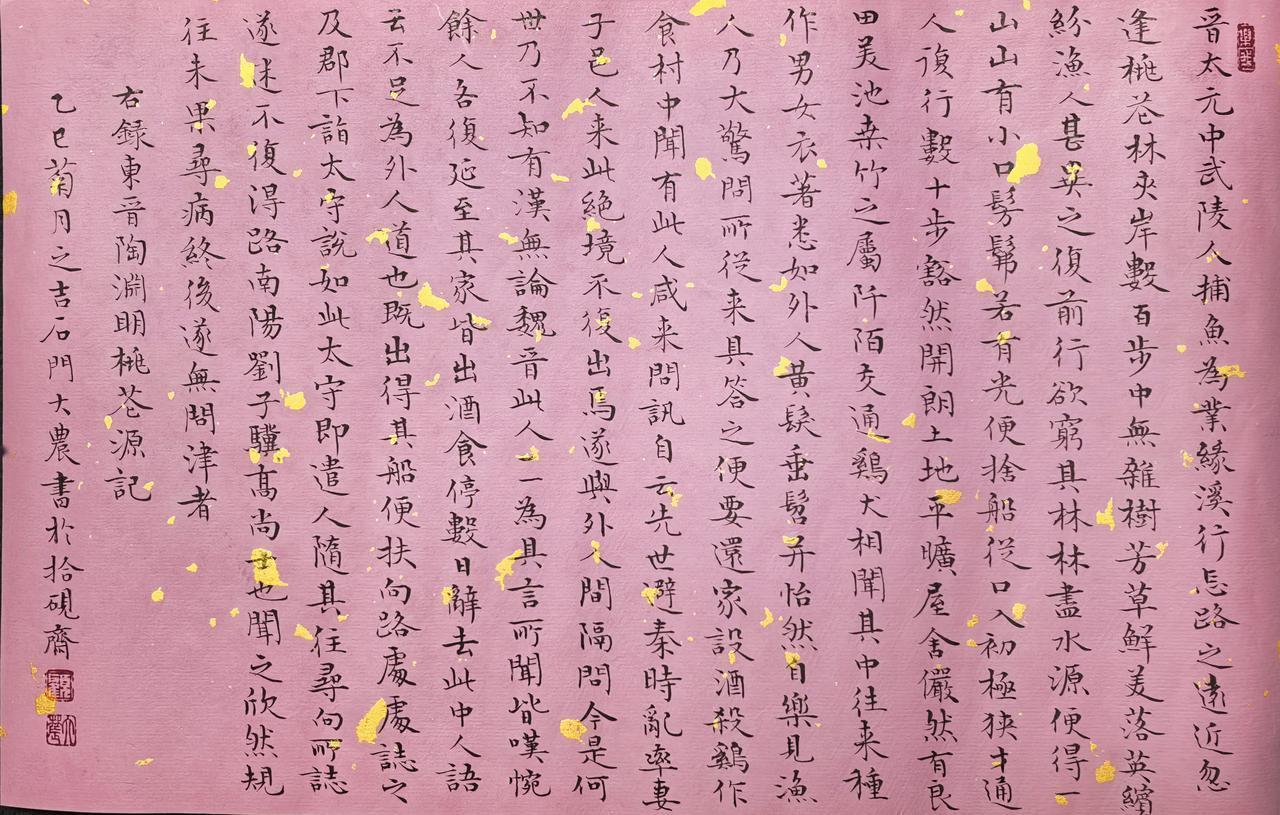 晋太元中武陵人捕魚為業緣溪行忘路之遠近忽
逢桃花林夾岸數百步中無雜樹芳草鮮美落英繽
紛漁人甚異之復前行欲窮其林林盡水源便得一
山山有小口髣髴若有光便捨船從口入初極狹才通
人復行數十步豁然開朗土地平曠屋舍儼然有良
田美池桒竹之屬阡陌交通鷄犬相聞其中往来種
作男女衣著悉如外人黄髮垂髫并怡然自樂見漁
人乃大驚問所従来具答之便要還家設酒殺鷄作
食村中聞有此人咸来問訊自云先世避秦時亂率妻
子邑人来此絶境不復出焉遂與外人間隔問今是何
世乃不知有漢無論魏晋此人一一為具言所聞皆嘆惋
餘人各復延至其家皆出酒食停數日辭去此中人語
云不足為外人道也既出得其船便扶向路處處誌之
及郡下詣太守說如此太守即遣人隨其往尋向所誌
遂迷不復得路南陽劉子驥髙尚士也聞之欣然規
往未果尋病終後遂無問津者
右録東晋陶淵明桃花源記
乙巳菊月之吉石門大農書於拾硯齋